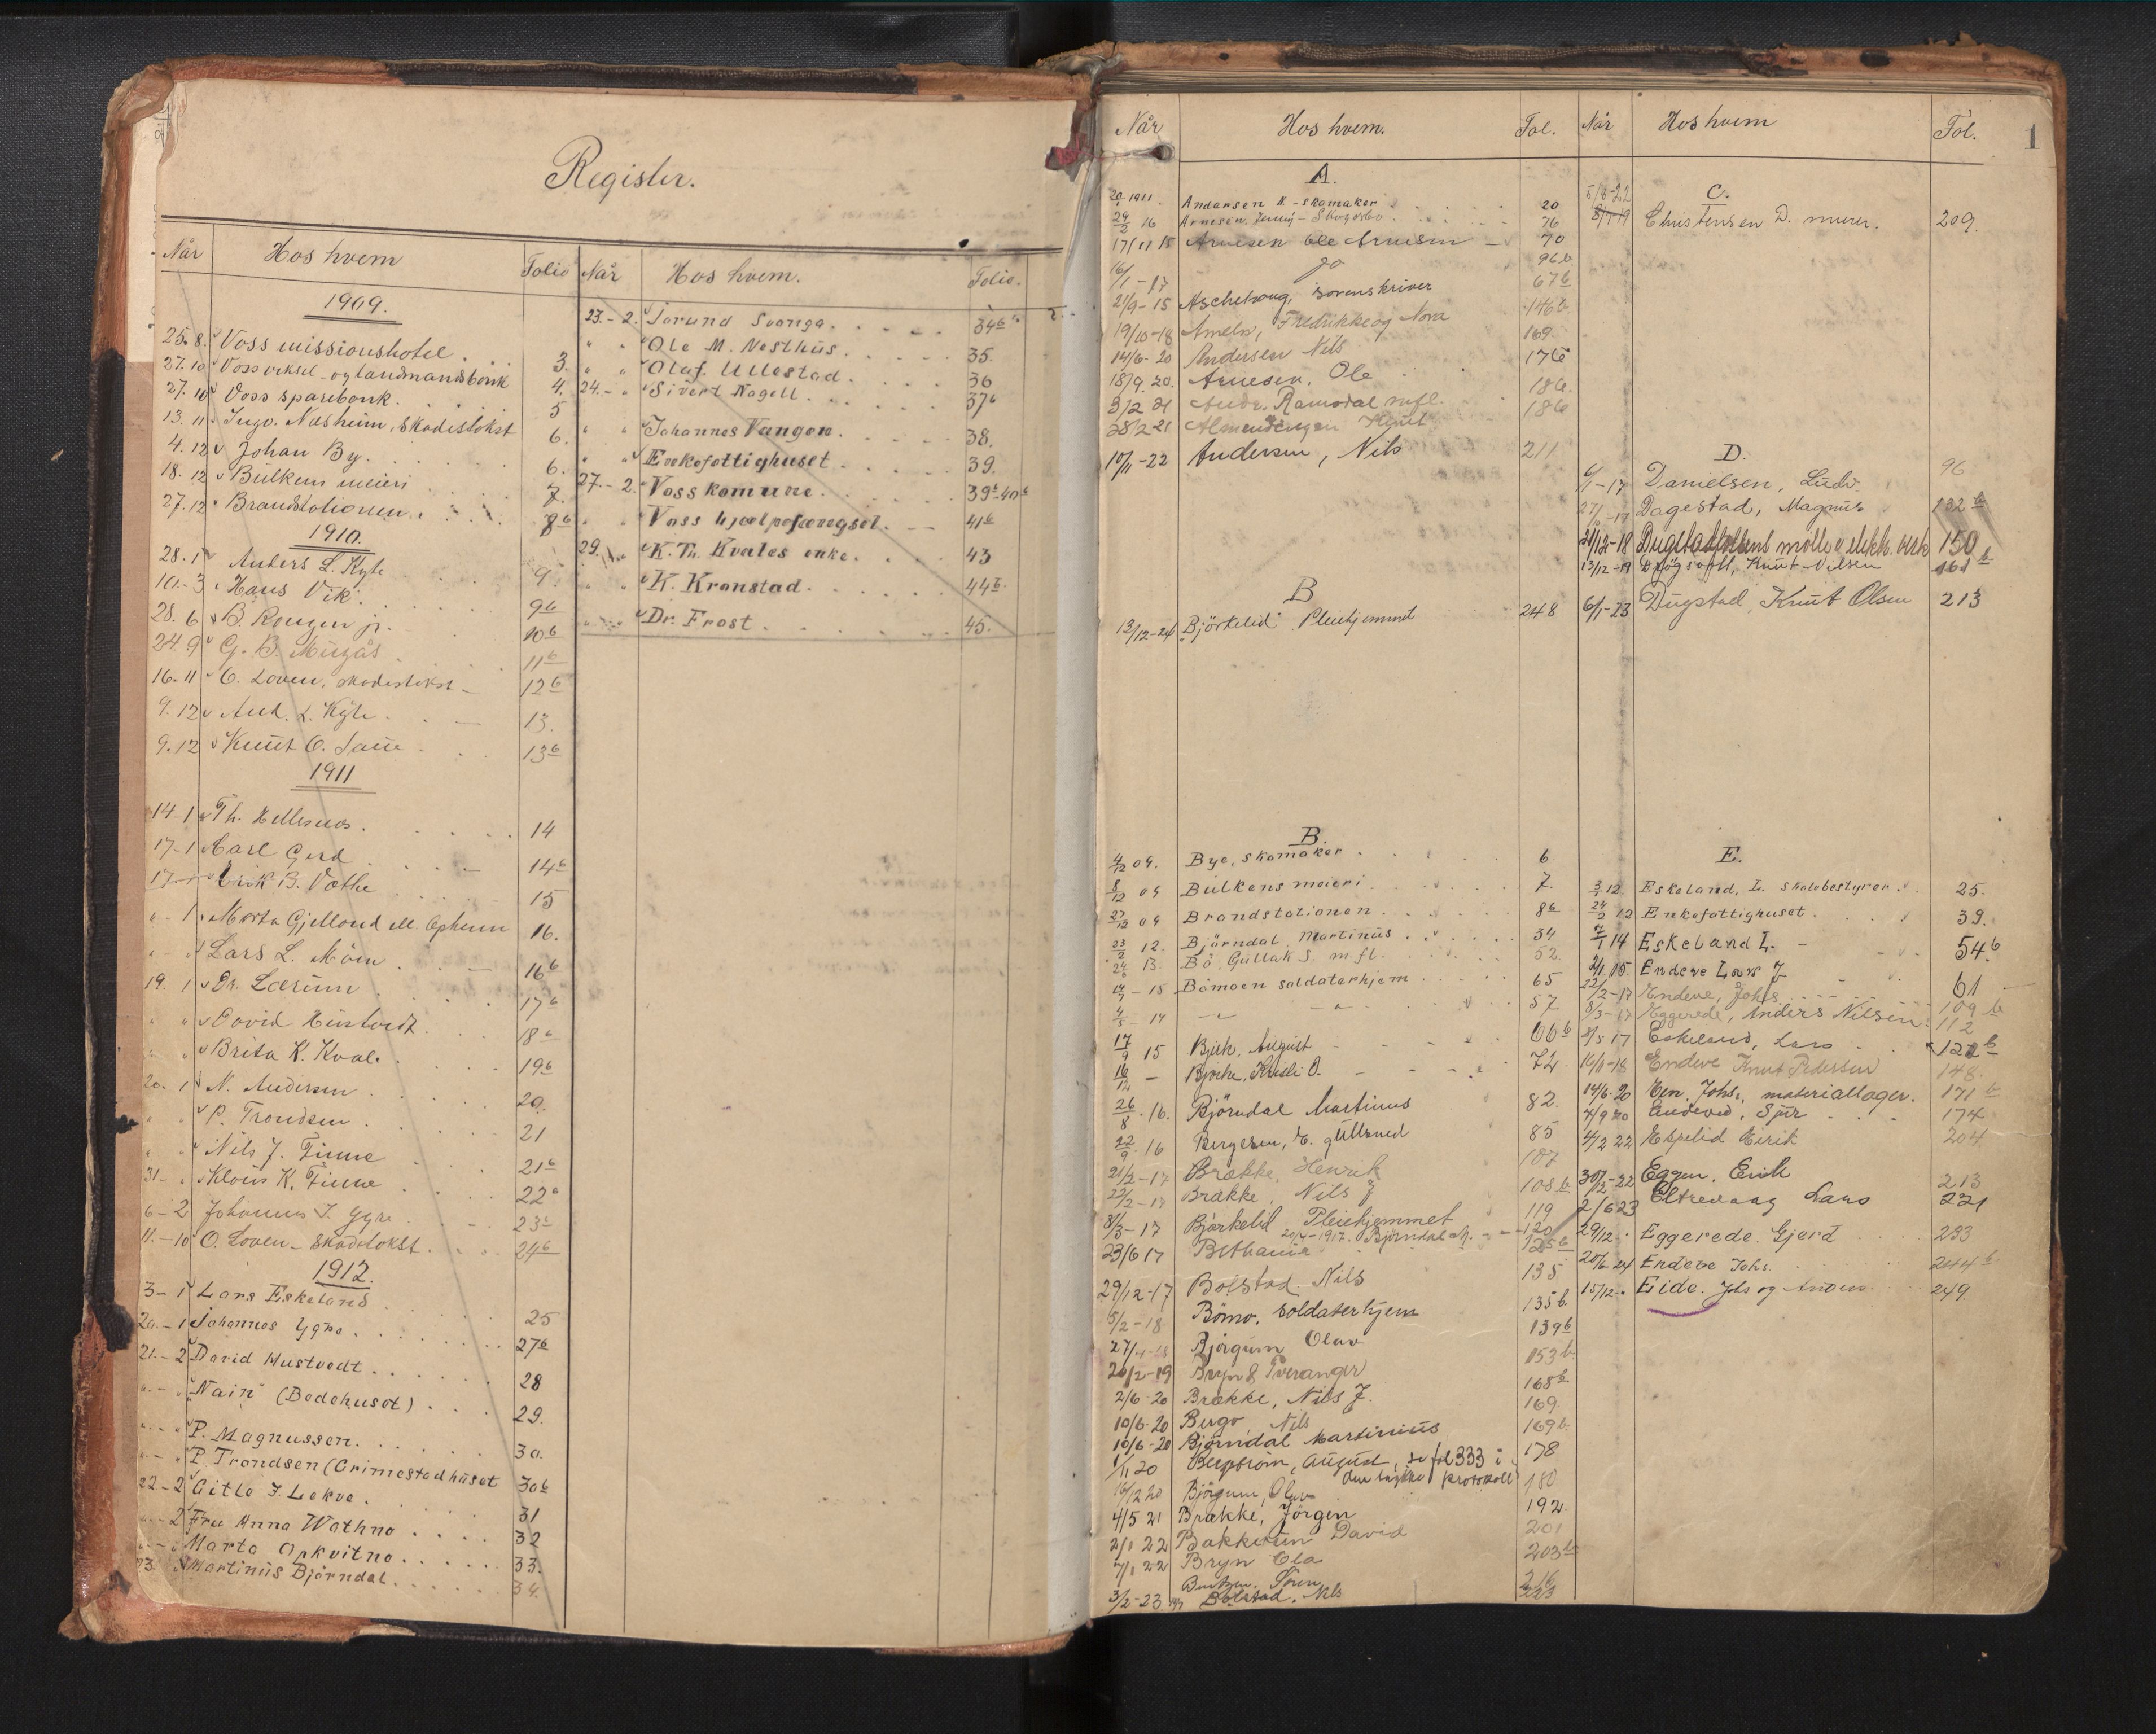 Register.
Når Hos hvem Folio
1909.
25.8. Voss missionshotel. 3.
27.10 Voss veksel- og landmandsbank 4.
27.10 Voss sparebank. 5
13.11. Ingv. Næsheim, skadestakst 6.
4.12 Johan By. 6.
18.12 Bulkens meieri 7.
27.12 Brandstationen. 8b
1910.
28.1 Anders L. Kyte 9.
10.-3 Hans Vik. 9b
28.6 B. Rengen jr. 10b
24.9 G. B. 11b
16.11 O. Loven, skadestakst 12b
9.12 And. L. Kyte. 13.
9.12 Knut O. Saue 13b
1911
14-1 Th. Hellesnes. 14
17-1 Carl Gerd 14b
17-1 Eirik B. Vethe 15
" 1 Marta Gjelland 16.
Lars L. Möen 16b
19. 1 Dr. Lærum 17b
" " David Hustvedt. 18b
" " Brita K. Kvale. 19b
20. 1 N. Andersen 20.
" " P. Trondsen 21
" " Nils J. Finne 21b
31- " Klaus K. Finne 22b
6-2 Johannes J. Ygre 23b
11.-10 O. Loven - skadetakst. 24b
1912.
3-1 Lars Eskeland 25
20.-1 Johannes Ygre. 27b
21.-2 David Hustvedt. 28
"Nain" (Bedehuset) 29.
P. Magnussen. 30.
P. Trondsen (Grimestadhuset 30b
22-2 Gitle J. Lekve. 31
" - 2 Fru Anna Wathne 32
Marta Opkvitne. 33.
23. Martinus Björndal. 34.
Når Hos hvem. Folio.
23.-2. Torund Svanga. 34b
" " Ole M. Nesthus. 35.
" " Olaf Ullestad. 36
24.- " Sivert Nagell. 37b
" " Johannes Vangen. 38.
" " Enkefattighuset. 39.
27.-2. Voss komune. 39b-40b
" " Voss hjælpefængsel. 41b
29. K. Th. Kvales enke. 43
" " K. Kronstad. 44b.
" Dr. Frost. 45.
1
Når Hos hvem. Fol.
A.
20/1 1911. Andersen N - skomaker 20
24/2 16 Arnesen, Jenny - Skorsbo 76
17/11 15 Arnesen Ole Arnesen 70
16/1-17 do 96b
21/9-15 Aschehoug, sorenskriver 67b
19/10-18 Ameln, Fredrikke og Nora 146b
14/6-20 Andersen Nils 169.
18/9.20. Arnesen. Ole 176
3/2 21 Andr. Ramsdal mfl. 186.
28/2-21 Almendingen Knut 186
10/11-22 Andersen, Nils 211
B
13/12-24 Björkelid Pleiehjemmet 248
B.
4/12 09. Bye, skomaker 6
8/12 09 Bulkens meieri 7.
27/12 09 Brandstationen 8b
23/2 12. Björndal Martinus 34
24/6 13. Bö Gullak S. m.fl. 52.
14/7-15 Bömoen soldaterhjem 65
4/5-14 " " 57
17/9 15 Bjerk, August 66b
16/12 - Bjerke, Kristi O. 74
26/8.16. Björndal Martinus 82.
22/9.16 Bergesen, E. gullsmed 85
21/2-17 Brække, Henrik 107
22/2-17 Brække, Nils J 108b
8/3-17 Björkelid Pleiehjemmet 119
20/4-1917. Björndal M. 120
23/6 17 Bethania 125b
29/12-17 Bolstad Nils 135
5/2-18 Bömo, Soldaterhjem 135b.
27/4-18 Björgum Olav 139b
20/2-19 Bryn & Tveranger 153b.
2/6-20 Brække, Nils J. 168b
10/6-20 Bergo Nils 169
10/6-20 Björndal Martinus 169b
1/11 20 Bergström, August, se fol 333 i 178
den tykke protokoll
16/12 20 Björgum, Olav 180
4/5 21 Brække, Jörgen 192.
2/1 22 Bakketun David 201
7/1 22 Bryn Ola 203b
216
3/2-23 Bolstad. Nils 223
Når Hos hvem Fol.
C.
5/8-22
8/1-19 Christensen D. murer. 209.
D.
6/1-17 Danielsen, Ludv. 96
27/10-17 Dagestad, Magnus 132b
21/12-18 Dugstadfossens mölle & elektr. verk 150b
13/12-19 Knut Nilsen 161b
6/1-23 Dugstad Knut Olsen 213
E.
3/1 12. Eskeland, L. skolebestyrer. 25.
24/2 12 Enkefattighuset. 39.
7/1 14 Eskeland L. - 54b
2/1 15. Endeve Lars J 61
22/2-17 Endeve, Johs. 109b
8/3-17 Eggerede, Anders Nilsen. 112
2/5 17 Eskeland, Lars 122b
16/11-18 Endeve Knut Pedersen 148.
14/6-20 Een. Johs., materiallager. 171b
4/9 20 Endeved, Sjur 174
4/2 22 Espelid Eirik 204
30/12-22 Eggen. Eirik 213
2/6 23 Eltrevaag Lars 221
29/12. Eggerede. Gjerd 233
20/6-24 Endeve Johs. 244b
15/12. Eide. Johs og Anders 249.